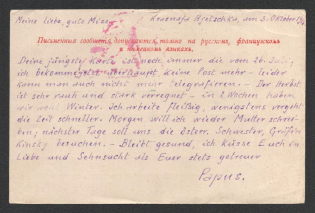 Meine liebe, gute Mizen
Krasnaja Rjetschka, am 3. Oktober
Письменныя сообщенія допускаются только на русскомъ, французскомъ
и нѣмецкомъ языкахъ.
Deine jüngste Karte ist noch immer die vom 26. Juli;
ich bekomme jetzt überhaupt keine Post mehr - leider
kann man auch nicht mehr telegrafieren. - Der Herbst
ist sehr rauh und stark verregnet - in 2 Wochen haben
wir wohl Winter. Ich arbeite fleißig, wenigstens vergeht
die Zeit schneller. Morgen will ich wieder Mutter schrei-
ben; nächster Tage soll uns die österr. Schwester, Gräfin
Kinsky besuchen. - Bleibt gesund, ich küsse Euch in
Liebe und Sehnsucht als Euer stets getreuer
Papus.